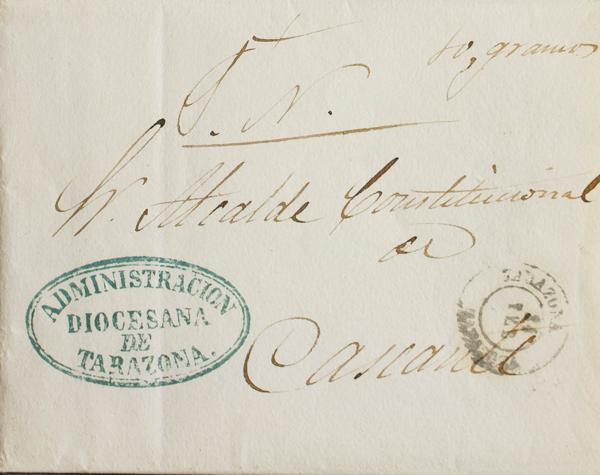 10, gramos
S. N.
Sr. Alcalde Constitucional
de
Cascante
ADMINISTRACION
DIOCESANA
DE
TARAZONA.
TARAZONA
FEB.